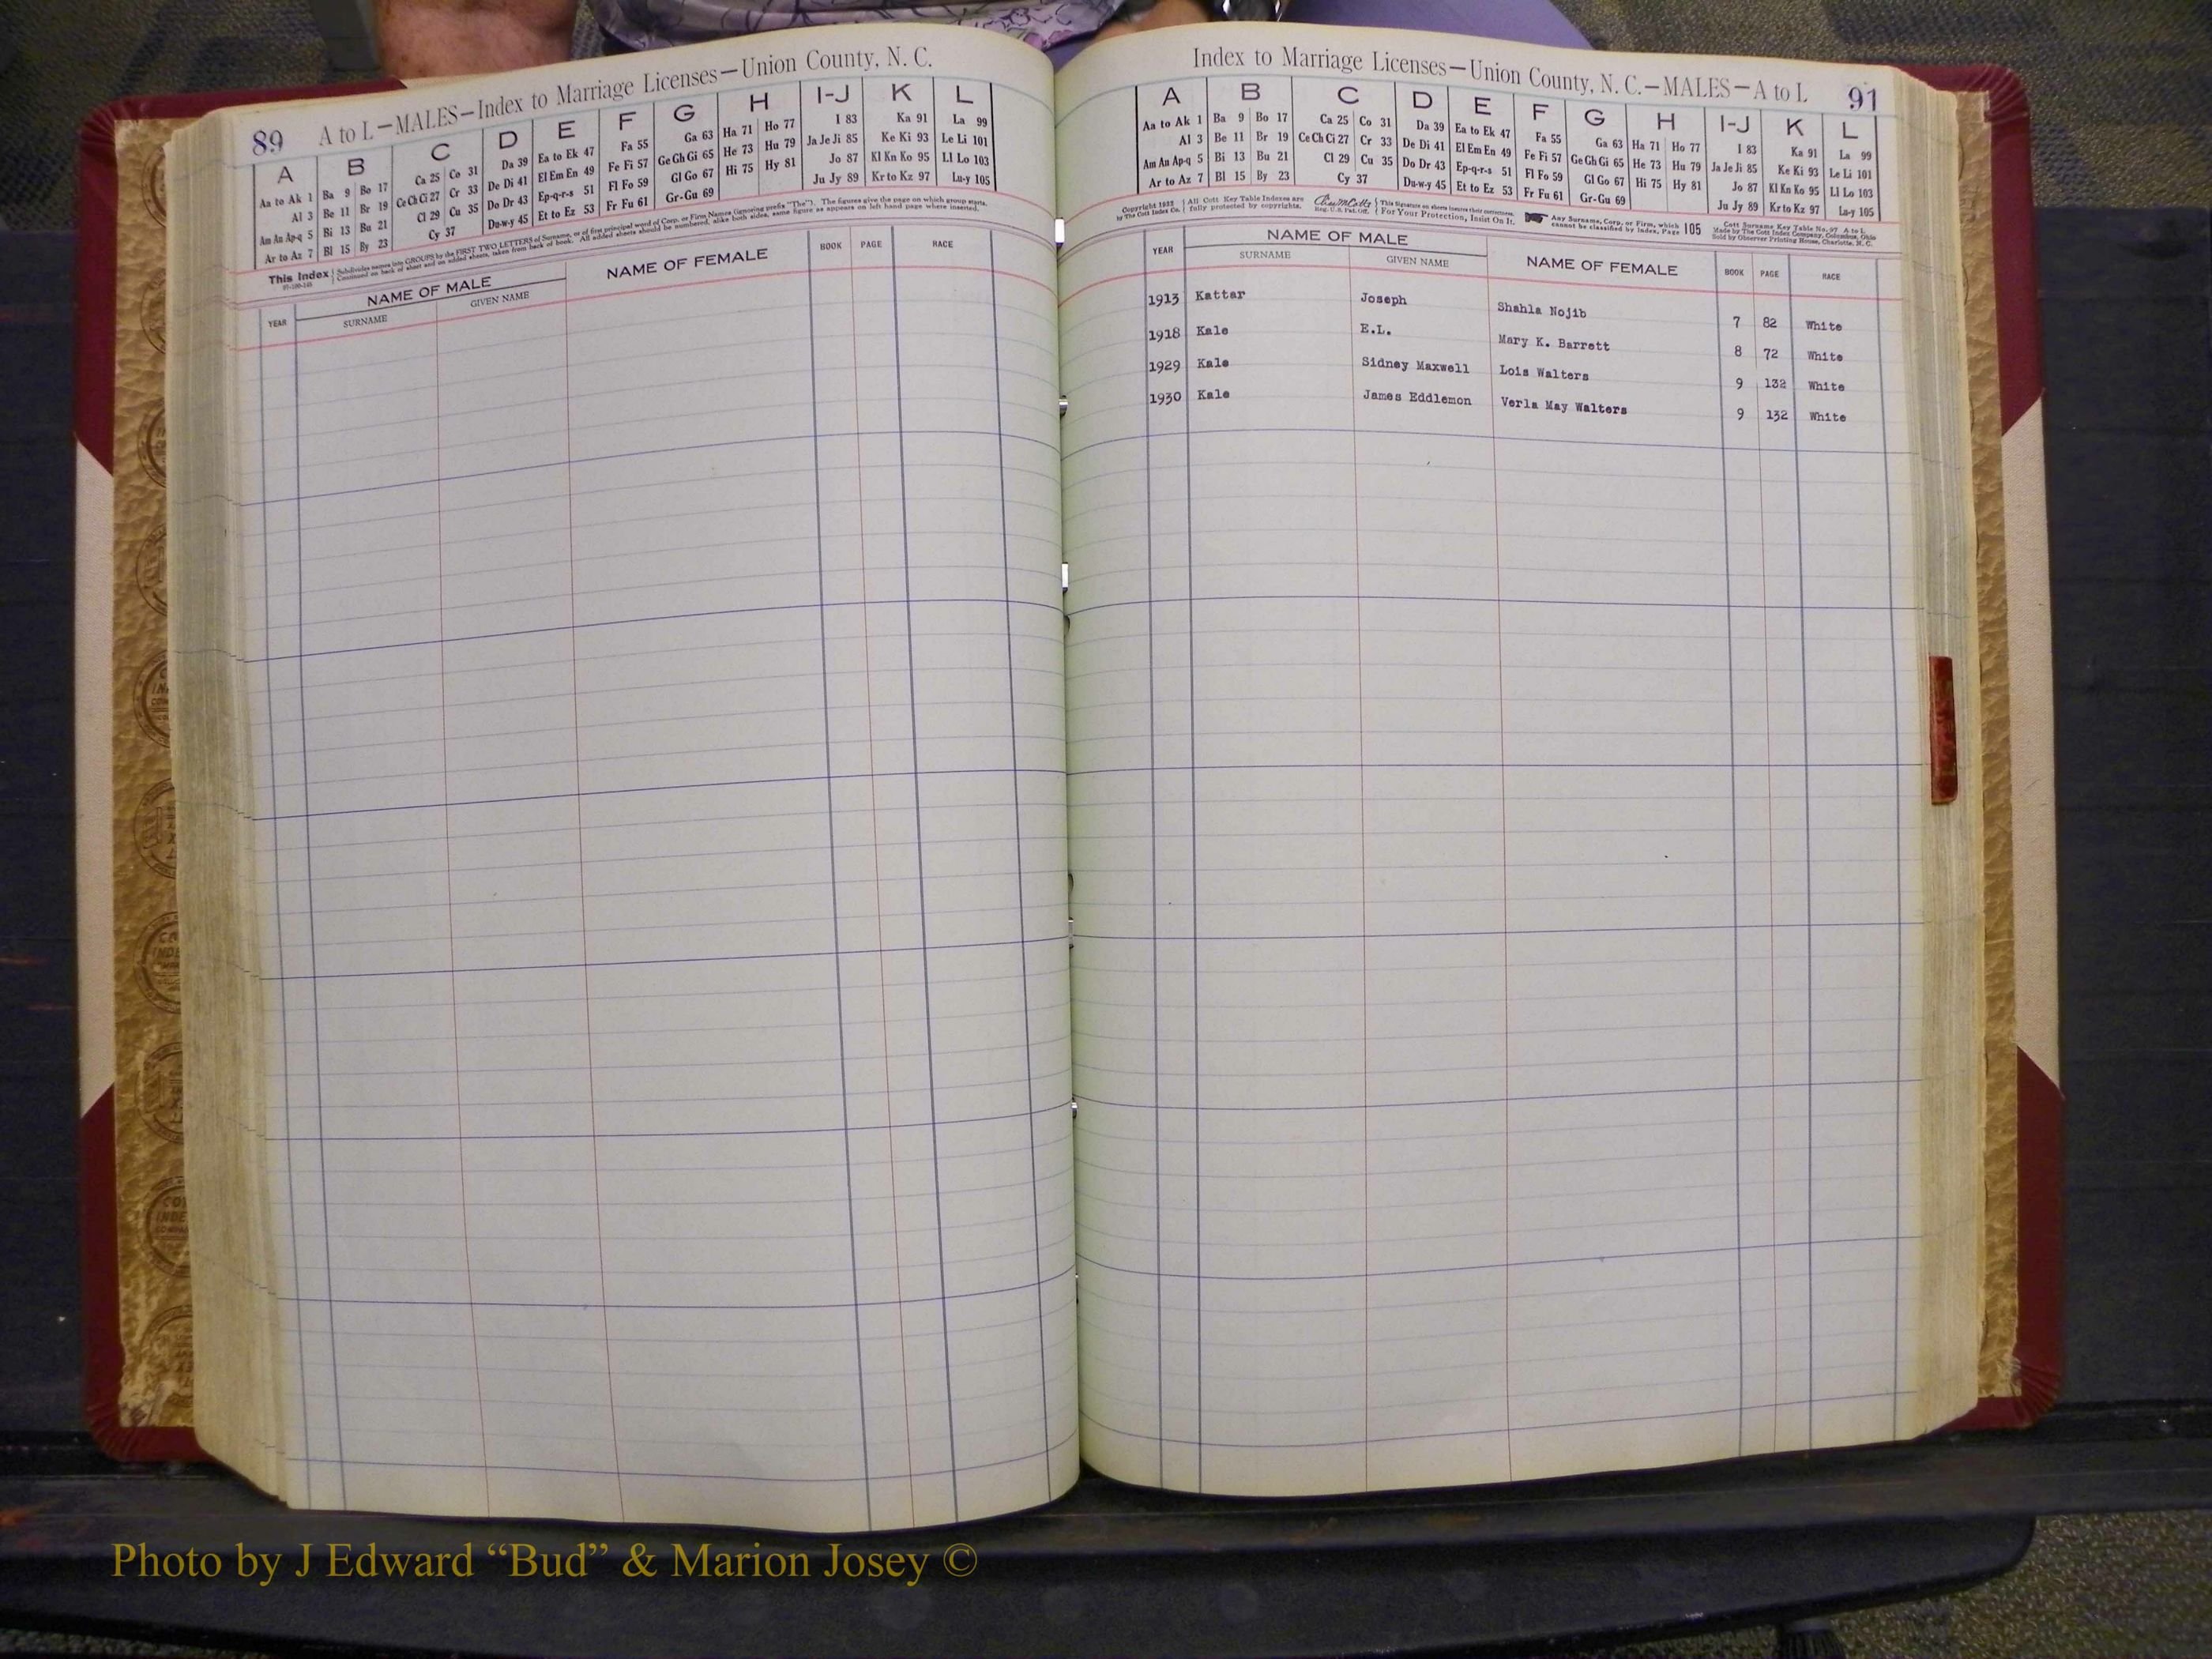 89 A to L—MALES—Index to Marriage Licenses—Union County, N. C.
A B C D E F G H I-J K L
Aa to Ak 1 Ba 9 Bo 17 Ca 25 Co 31 Da 39 Ea to Ek 47 Fa 55 Ga 63 Ha 71 Ho 77 I 83 Ka 91 La 99
Al 3 Be 11 Br 19 Ce Ch Ci 27 Cr 33 De Di 41 El Em En 49 Fe Fi 57 Ge Gh Gi 65 He 73 Hu 79 Ja Je Ji 85 Ke Ki 93 Le Li 101
Am An Ap-q 5 Bi 13 Bu 21 Cl 29 Cu 35 Do Dr 43 Ep-q-r-s 51 Fl Fo 59 Gl Go 67 Hi 75 Hy 81 Jo 87 Kl Kn Ko 95 Ll Lo 103
Ar to Az 7 Bl 15 By 23 Cy 37 Du-w-y 45 Et to Ez 53 Fr Fu 61 Gr-Gu 69 Ju Jy 89 Kr to Kz 97 Lu-y 105
This Index Subdivides names into GROUPS by the FIRST TWO LETTERS of Surname, or of first principal word of Corp. or Firm Names (ignoring prefix "The"). The figures give the page on which group starts.
Continued on back of sheet and on added sheets, taken from back of book. All added sheets should be numbered, alike both sides, same figure as appears on left hand page where inserted.
YEAR NAME OF MALE NAME OF FEMALE BOOK PAGE RACE
SURNAME GIVEN NAME
Index to Marriage Licenses—Union County, N. C.—MALES—A to L 91
A B C D E F G H I-J K L
Aa to Ak 1 Ba 9 Bo 17 Ca 25 Co 31 Da 39 Ea to Ek 47 Fa 55 Ga 63 Ha 71 Ho 77 I 83 Ka 91 La 99
Al 3 Be 11 Br 19 Ce Ch Ci 27 Cr 33 De Di 41 El Em En 49 Fe Fi 57 Ge Gh Gi 65 He 73 Hu 79 Ja Je Ji 85 Ke Ki 93 Le Li 101
Am An Ap-q 5 Bi 13 Bu 21 Cl 29 Cu 35 Do Dr 43 Ep-q-r-s 51 Fl Fo 59 Gl Go 67 Hi 75 Hy 81 Jo 87 Kl Kn Ko 95 Ll Lo 103
Ar to Az 7 Bl 15 By 23 Cy 37 Du-w-y 45 Et to Ez 53 Fr Fu 61 Gr-Gu 69 Ju Jy 89 Kr to Kz 97 Lu-y 105
Copyright 1932 All Cott Key Table Indexes are This Signature on sheets insures their correctness. Any Surname, Corp. or Firm, which 105 Cott Surname Key Table No. 97 A to L
by The Cott Index Co. fully protected by copyrights. Reg. U.S. Pat. Off. For Your Protection, Insist On It. cannot be classified by Index, Page Made by The Cott Index Company, Columbus, Ohio
Sold by Observer Printing House, Charlotte, N. C.
YEAR NAME OF MALE NAME OF FEMALE BOOK PAGE RACE
SURNAME GIVEN NAME
1913 Kattar Joseph Shahla Nojib 7 82 White
1918 Kale E.L. Mary K. Barrett 8 72 White
1929 Kale Sidney Maxwell Lois Walters 9 132 White
1930 Kale James Eddlemon Verla May Walters 9 132 White
Photo by J Edward “Bud” & Marion Josey ©